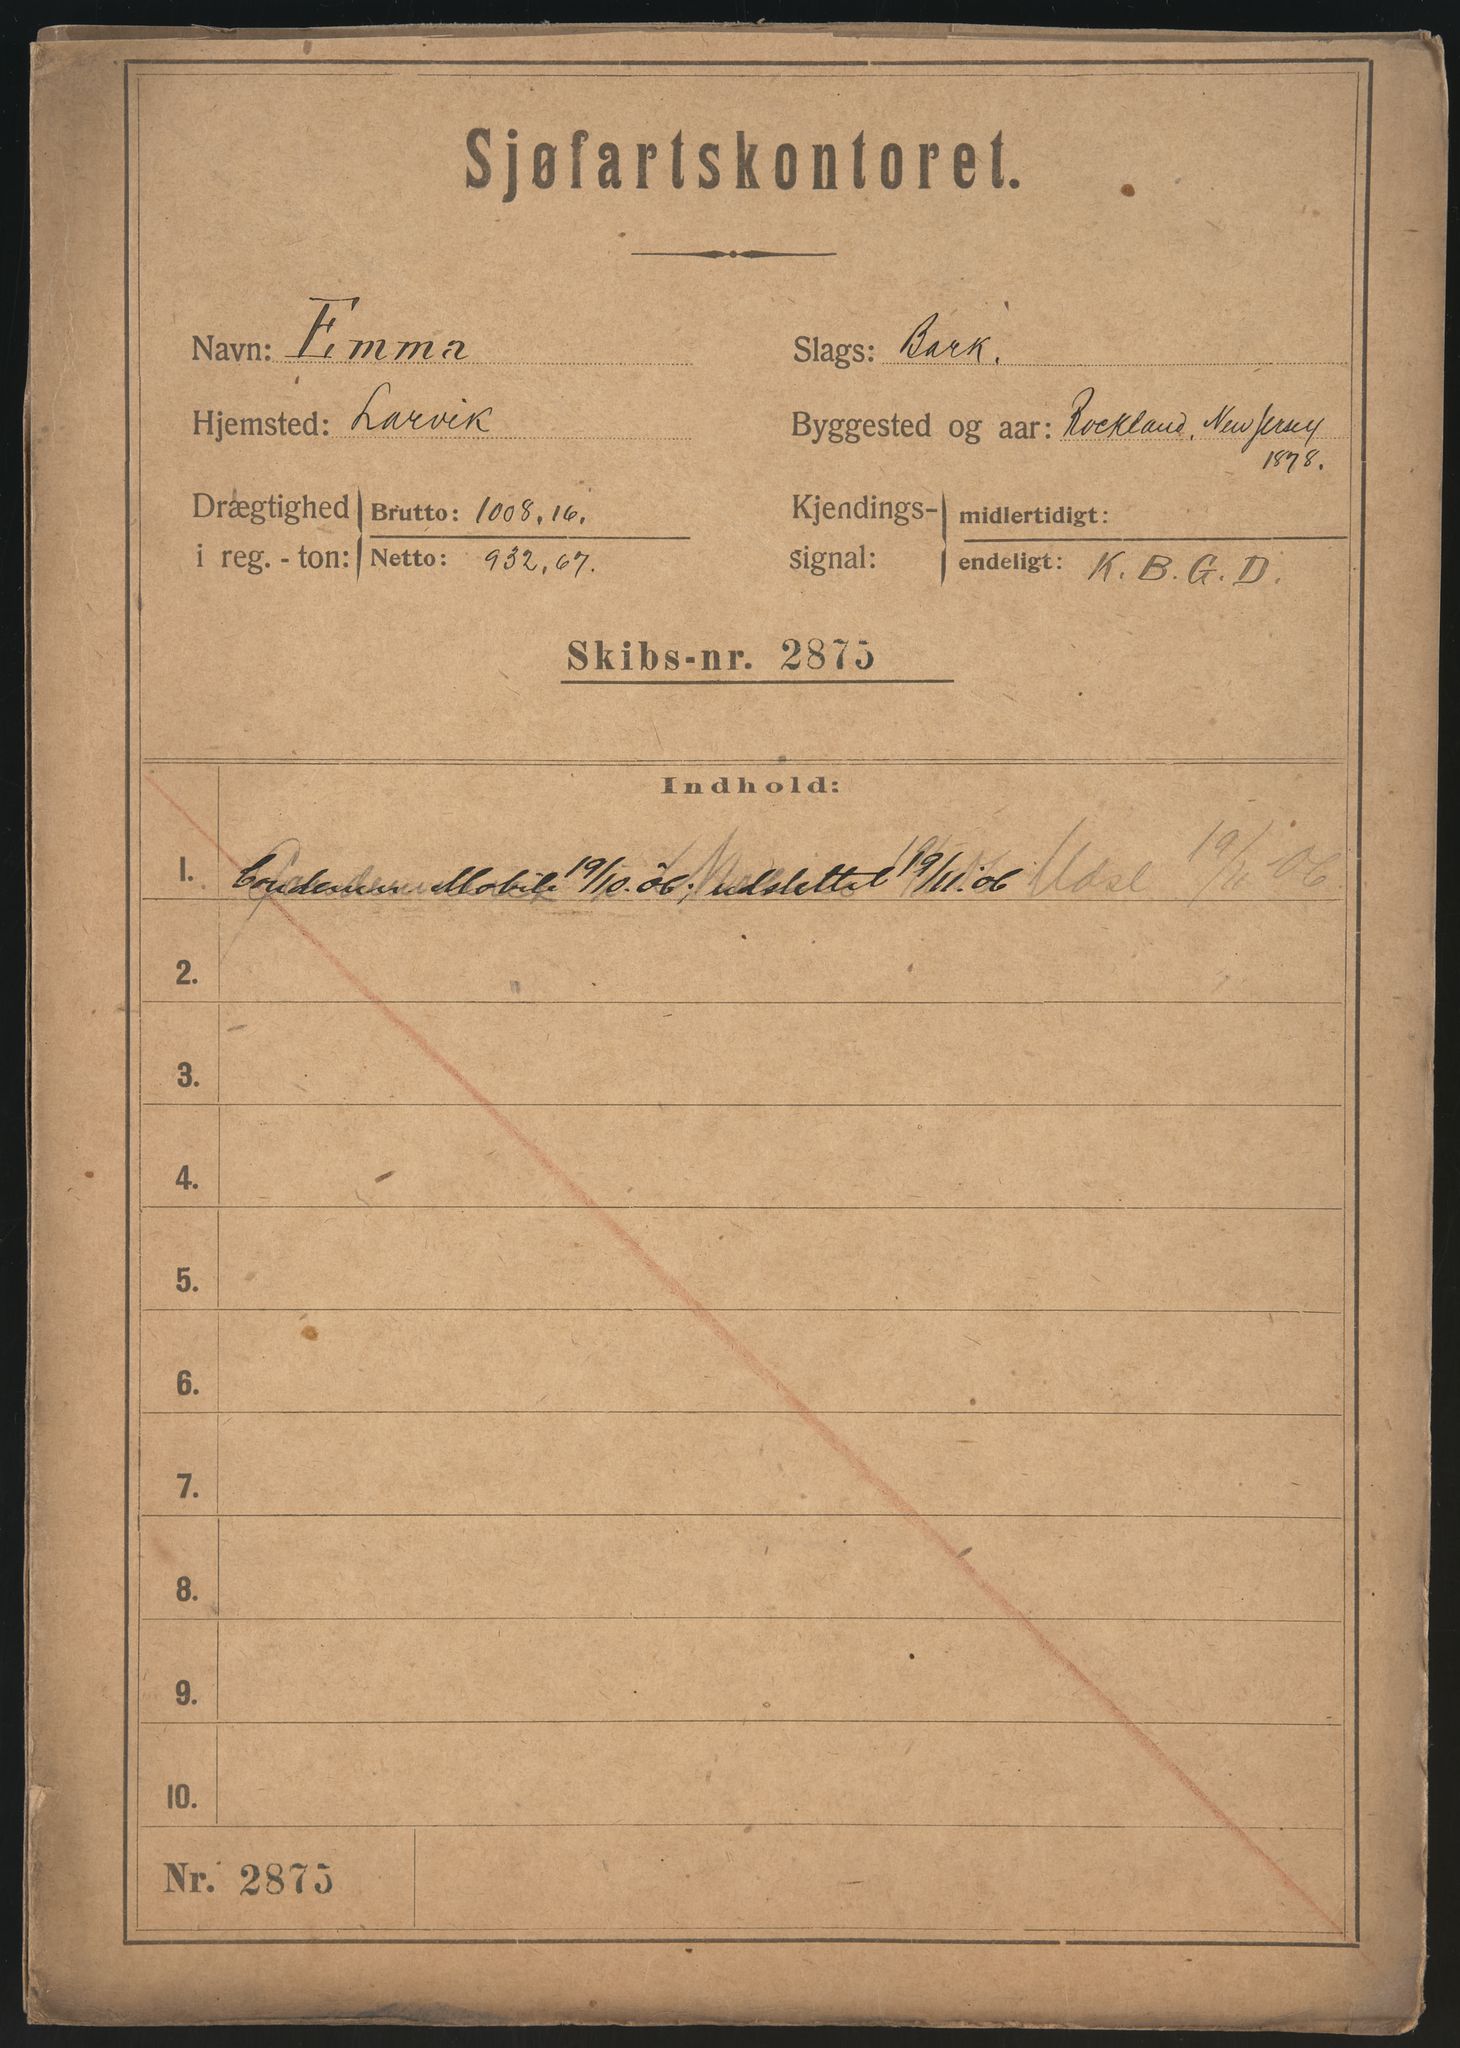 Sjøfartskontoret.
Navn: Emma
Slags: Bark.
Hjemsted: Larvik
Byggested og aar: Rockland, New Jersey
1878.
Drægtighed i reg. - ton: Brutto: 1008,16.
Netto: 932,67.
Kjendings-signal: midlertidigt:
endeligt: K. B. G. D.
Skibs-nr. 2875
Indhold:
1. Condemn Mobile 19/10.06, udslettet 19/11.06 Udsl 19/11 06
2.
3.
4.
5.
6.
7.
8.
9.
10.
Nr. 2875